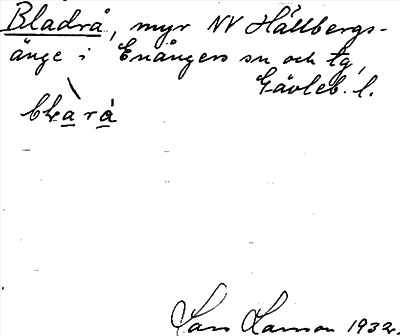 Bladrå, myr NV Hållbergs-
änge i Enångers sn och tg,
Gävleb. l.
Lars Larsson 1932.